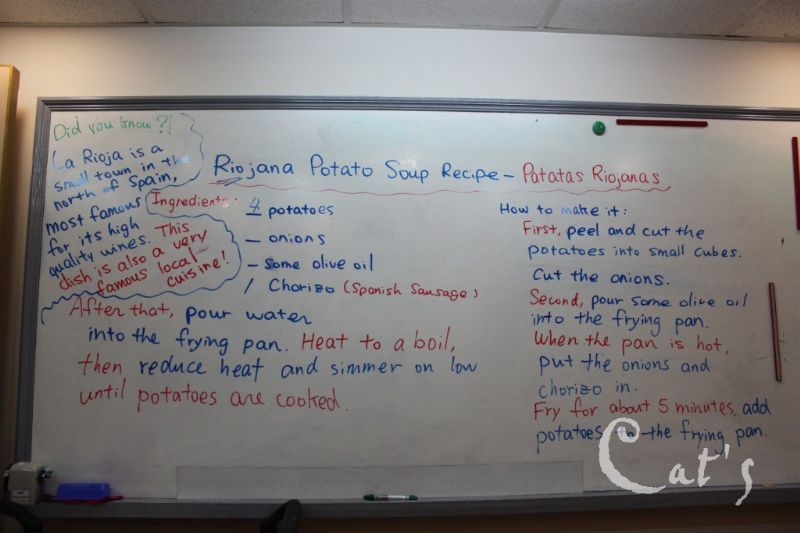 Did you know?!
La Rioja is a
small town in the
north of Spain,
most famous
for its high
quality wines. This
dish is also a very
famous local
cuisine!
Riojana Potato Soup Recipe – Patatas Riojanas
Ingredients: 4 potatoes
– onions
– some olive oil
/ Chorizo (Spanish Sausage)
How to make it:
First, peel and cut the
potatoes into small cubes.
Cut the onions.
Second, pour some olive oil
into the frying pan.
When the pan is hot,
put the onions and
chorizo in.
Fry for about 5 minutes, add
potatoes to the frying pan.
After that, pour water
into the frying pan. Heat to a boil,
then reduce heat and simmer on low
until potatoes are cooked.
Cat's